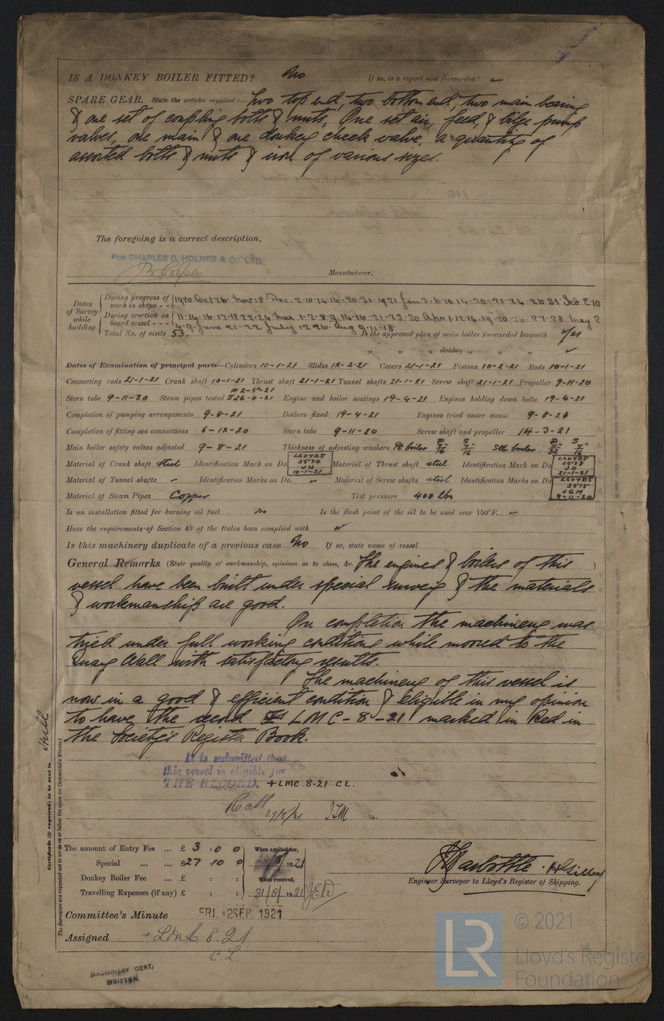 IS A DONKEY BOILER FITTED? No If so, is a report now forwarded?
SPARE GEAR. State the articles supplied:— Two top end, two bottom end, two main bearing
& one set of coupling bolts & nuts, One set air, feed, & bilge pump
valves, one main & one donkey check valve, a quantity of
assorted bolts & nuts & iron of various sizes.
The foregoing is a correct description,
For CHARLES D. HOLMES & Co. LTD.
Manufacturer.
Dates of Survey while building
During progress of work in shops - - 1920 Oct 26 Nov 18 Dec 2-10-14-16-20-31-1921 Jan
During erection on board vessel - - -
Total No. of visits 53. Is the approved plan of main boiler forwarded herewith Yes
" " " donkey " "
Dates of Examination of principal parts—Cylinders 10-1-21 Slides 12-2-21 Covers 21-1-21 Pistons 10-2-21 Rods 10-1-21
Connecting rods 21-1-21 Crank shaft 10-1-21 Thrust shaft 21-1-21 Tunnel shafts 21-1-21 Screw shaft 21-1-21 Propeller 9-11-20
Stern tube 9-11-20 Steam pipes tested Engine and boiler seatings 19-4-21 Engines holding down bolts 19-4-21
Completion of pumping arrangements 9-8-21 Boilers fixed 19-4-21 Engines tried under steam 9-8-21
Completion of fitting sea connections 6-12-20 Stern tube 9-11-20 Screw shaft and propeller 14-3-21
Main boiler safety valves adjusted 9-8-21 Thickness of adjusting washers Pt boiler Stb boiler
Material of Crank shaft steel Identification Mark on Do. LLOYDS 10-1-21 Material of Thrust shaft steel Identification Mark on Do. LLOYDS 21-1-21
Material of Tunnel shafts Identification Marks on Do. Material of Screw shafts steel Identification Marks on Do. LLOYDS 9-11-20
Material of Steam Pipes Copper Test pressure 400 lbs
Is an installation fitted for burning oil fuel no Is the flash point of the oil to be used over 150°F.
Have the requirements of Section 49 of the Rules been complied with
Is this machinery duplicate of a previous case No If so, state name of vessel
General Remarks (State quality of workmanship, opinions as to class, &c. The engines & boilers of this
vessel have been built under special survey & the materials
& workmanship are good.
On completion the machinery was
tried under full working conditions while moored to the
Quay Wall with satisfactory results.
The machinery of this vessel is
now in a good & efficient condition & eligible in my opinion
to have the record LMC-8-21 marked in Red in
the Society's Register Book.
It is submitted that
this vessel is eligible for
THE RECORD. +LMC 8.21 CL.
Certificate (if required) to be sent to Hull
The amount of Entry Fee ... £ 3 : 0 : 0 When applied for,
Special ... ... £ 27 : 10 : 0
Donkey Boiler Fee ... £ : : When received,
Travelling Expenses (if any) £ : : 31/8/1921
Engineer Surveyor to Lloyd's Register of Shipping.
Committee's Minute FRI. 2 SEP. 1921
Assigned + LMC 8.21
C.L
MACHINERY CERT.
WRITTEN.
LR
© 2021
Lloyd's Register
Foundation